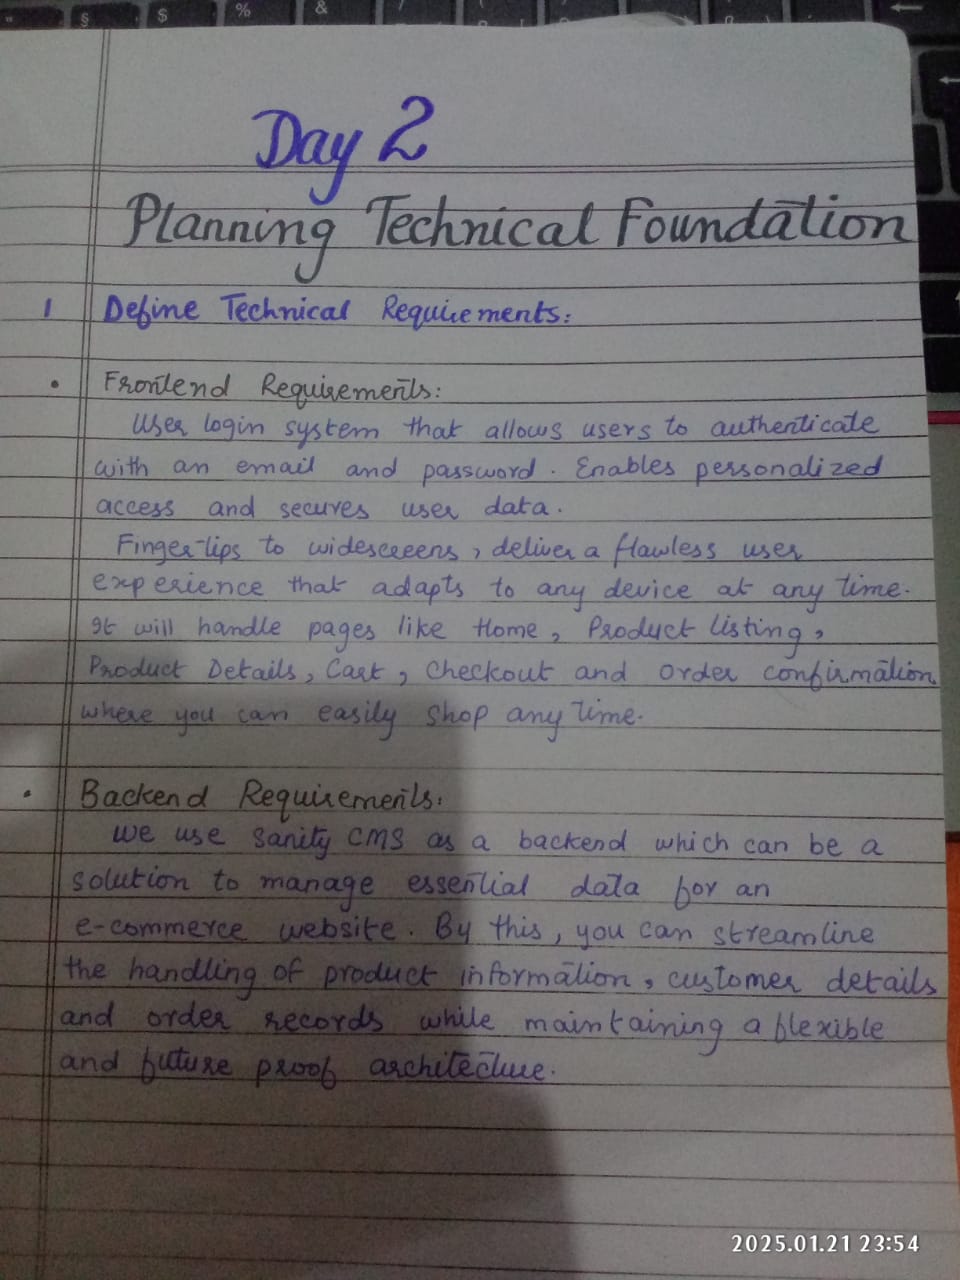 § $ % &
Day 2
Planning Technical Foundation
1 Define Technical Requirements:
• Frontend Requirements:
User login system that allows users to authenticate
with an email and password. Enables personalized
access and secures user data.
Fingertips to widescreens, deliver a flawless user
experience that adapts to any device at any time.
It will handle pages like Home, Product listing,
Product Details, Cart, Checkout and Order confirmation
where you can easily shop any time.
• Backend Requirements:
We use sanity CMS as a backend which can be a
solution to manage essential data for an
e-commerce website. By this, you can streamline
the handling of product information, customer details
and order records while maintaining a flexible
and future proof architecture.
2025.01.21 23:54